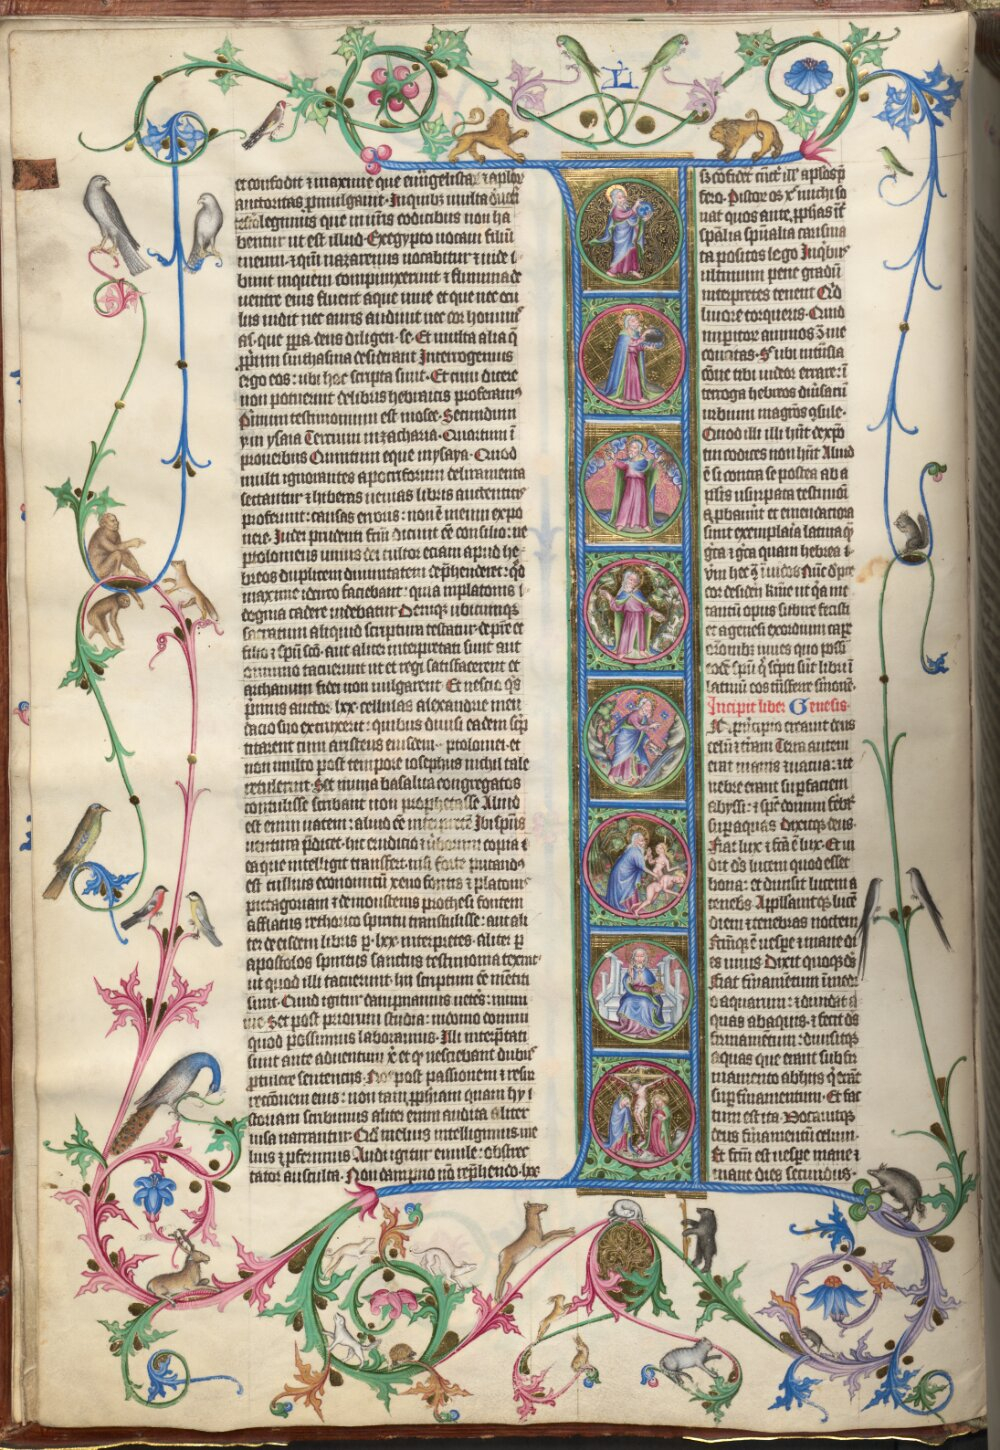 L
et confodit ⁊ maxime que euangelistaꝝ ⁊ aplorꝫ
auctoritas promulgauit. In quibꝫ multa
legimus que in nostris codicibus non ha
bentur ut est illud. Ex egypto uocaui filiū
meum. ⁊ qm̄ nazarenus uocabitur ⁊ uide
bunt in quem compunxerunt ⁊ flumina de
uentre eius fluent aque uiue et que nec ocu
lus uidit nec auris audiuit nec cor hominis
as. que ꝓpria deus diligen. se. Et multa alia q̄
ꝓprium sintasma desiderant Interrogemus
ergo eos: ubi hec scripta sunt. Et cum dicere
non potuerint de libris hebraicis proferam9
Primum testimonium est in osee. Secundum
in ysaia Tercium in zacharia. Quartum ī
prouerbiis Quintum eque in ysaya. Quod
multi ignorantes apocriforum deliramenta
sectantur ⁊ hiberas nenias libris autenticis
preferunt: causas erroris: non ē meum expo
nere. Iudei prudenti factum dicunt eē consilio: ne
ptolomeus unius dei cultor eciam apud he
breos duplicem diuinitatem cōprehenderet: qd
maxime idcirco faciebant: quia in platonis
dogma cadere uidebatur Deniqꝫ ubicumqꝫ
sacratum aliquid scriptura testatur de patre et
filio ⁊ spū scō. aut aliter interpretati sunt aut
omnino tacuerunt ut et regi satisfacerent et
archanum fidei non uulgarent. Et nescio q̄s
primus auctor. lxx. cellulas alexandrie men
dacio suo extruxerit: quibus diuisi eadem scp̄
titarent cum aristeus eiusdem ptolomei. et
non multo post tempore iosephus nichil tale
retulerint. Set in una basalita congregatos
contulisse scribant non prophetasse Aliud
est enim uatem: aliud eē interpretē Ibi spūs
uentura p̄dicet. hic eruditio ⁊ uerborum copia
ea que intelligit transfert. nisi forte putandus
est tullius economicū xenofontis ⁊ platonis
pitagoriam ⁊ demostenis prothesi fontem
afflatus rethorico spiritu transtulisse: aut ali
ter de eisdem libris p. lxx. interpretes. aliter p̄
apostolos spiritus sanctus testimonia texuit
ut quod illi tacuerunt. hii scriptum eē mētiti
sunt. Quid igitur dampnamus ueteres: mini
me Set post priorum studia: in domo domini
quod possumus laboramus. Illi interp̄tati
sunt ante aduentum xp̄i et qd nesciebant dubiis
protulere sentenciis. Nos post passionem ⁊ resur
rectionem eius: non tam prophetiam quam hy
storiam scribimus aliter enim audita aliter
uisa narrantur. Qd melius intelligimus. me
lius ⁊ proferimus Audi igitur emule: obstrec
tator ausculta. Non dampno nō rep̄hendo. lxx.
s; confident' cūctis illis aplos p̄
fero. Per istor os xp̄s michi so
nat quos ante prophetas īt
spūalia
ta positos lego In quibꝫ
ultimum pene gradū
interpretes tenent Qd
liuore torqueris. Quid
imperitor animos 9 me
concitas. Sicubi in
one tibi uideor errare:
terroga hebreos diuersarū
urbium magistros 9sule.
Quod illi h̄nt de xp̄o
tui codices non h̄nt Aliud
ē si contra se postea ab a
postolis usurpata testimoni
a probauerūt et emendatiora
sunt exemplaria latina q̄
greca ⁊ greca quam hebrea
Nunc
te desideri kme ut qa me
tantū opus subire fecisti
et a genesi exordium capere
orōnibꝫ iuues quo possi
eodē spū q̄ scripti sunt libri ī
latinū eos trāsferre sermonē.
Incipit liber Genesis.
N principio creauit deus
celū ⁊ terram Terra autem
erat inanis ⁊ uacua: ⁊ te
nebre erant super faciem
abyssi: ⁊ spc domini fereb'
super aquas Dixitqꝫ deus.
Fiat lux ⁊ fcā ē lux. Et ui
dit ds lucem quod esset
bona: et diuisit lucem a
tenebris Appellauitqꝫ lucē
diem ⁊ tenebras noctem
Fctūmqꝫ ē uespe ⁊ mane di
es unus Dixit quoqꝫ ds
Fiat firmamētum ī medi
o aquarum: ⁊ diuidat a
quas ab aquis. ⁊ fecit ds
firmamentum: diuisitqꝫ
aquas que erant sub fir
mamento ab hiis q̄ erāt
super firmamentum. Et fac
tum est ita Vocauitqꝫ
deus firmamentū celum.
Et fcm̄ est uespe mane ⁊
mane dies secundus.